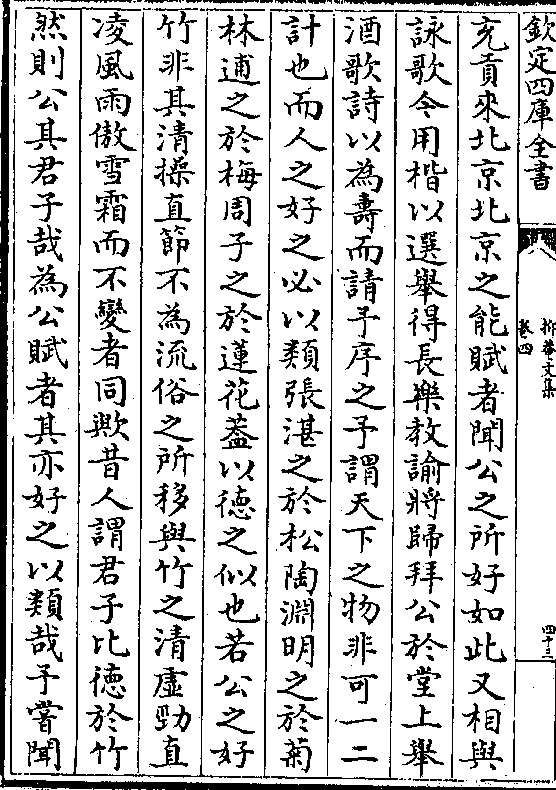 欽定四庫全書
抑菴文集
卷四
四十三
充貢來北京北京之能賦者聞公之所好如此又相與
詠歌今用楷以選舉得長樂教諭將歸拜公於堂上舉
酒歌詩以為壽而請予序之予謂天下之物非可一二
計也而人之好之必以類張湛之於松陶淵明之於菊
林逋之於梅周子之於蓮花蓋以德之似也若公之好
竹非其清操直節不為流俗之所移與竹之清虛勁直
凌風雨傲雪霜而不變者同歟昔人謂君子比德於竹
然則公其君子哉為公賦者其亦好之以類哉予嘗聞